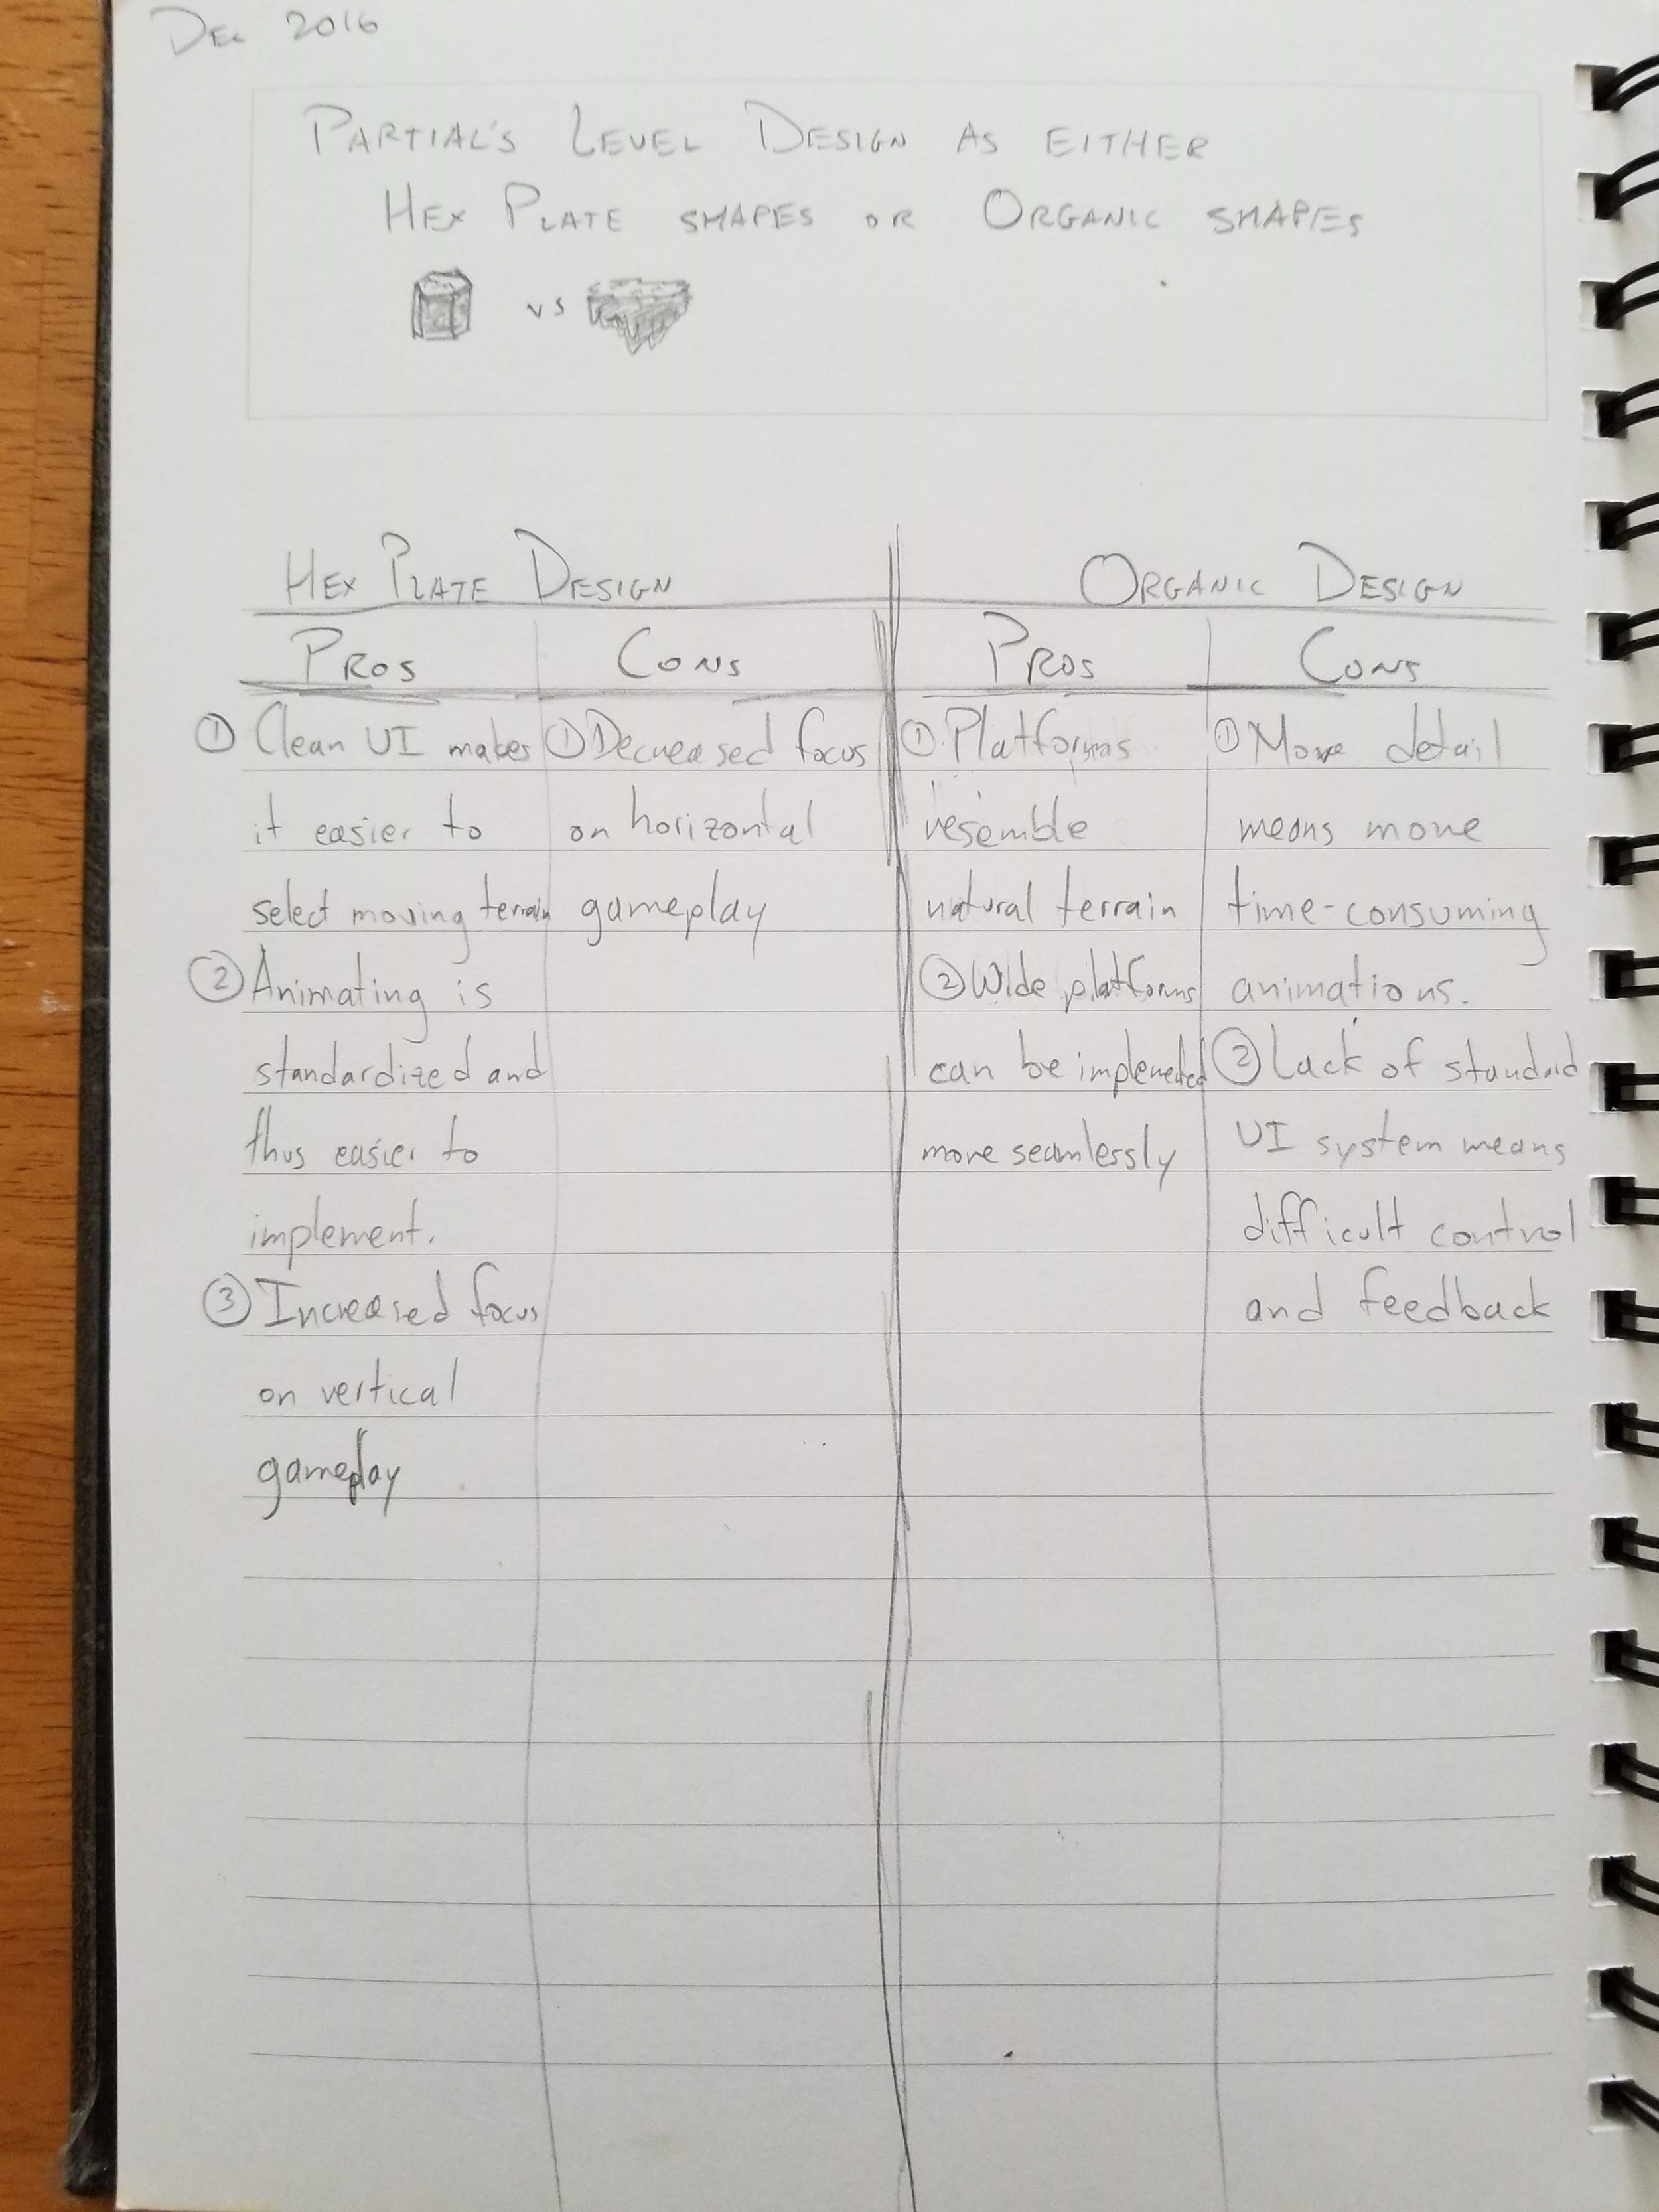 Dec 2016
Partial's Level Design as either
Hex Plate shapes or Organic shapes
vs
Hex Plate Design
Pros
① Clean UI makes
it easier to
select moving terrain
② Animating is
standardized and
thus easier to
implement.
③ Increased focus
on vertical
gameplay
Cons
① Decreased focus
on horizontal
gameplay
Organic Design
Pros
① Platforms
resemble
natural terrain
② Wide platforms
can be implemented
more seamlessly
Cons
① More detail
means more
time-consuming
animations.
② Lack of standard
UI system means
difficult control
and feedback